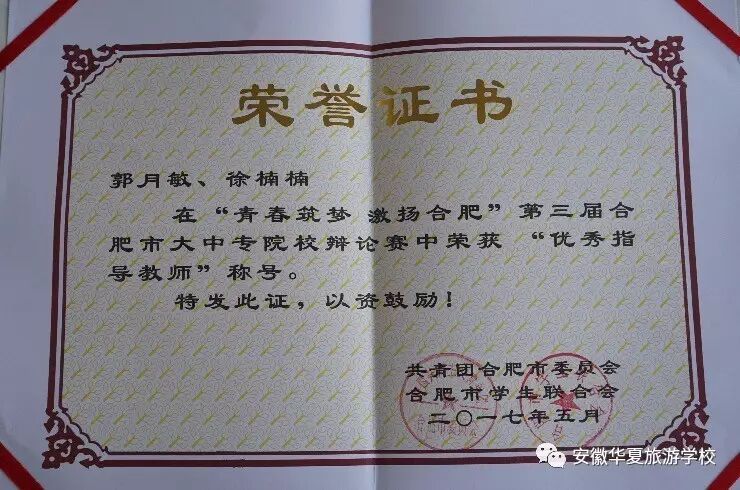 荣誉证书
郭月敏、徐楠楠
在“青春筑梦 激扬合肥”第三届合
肥市大中专院校辩论赛中荣获 “优秀指
导教师”称号。
特发此证，以资鼓励！
共青团合肥市委员会
合肥市学生联合会
二〇一七年五月
安徽华夏旅游学校